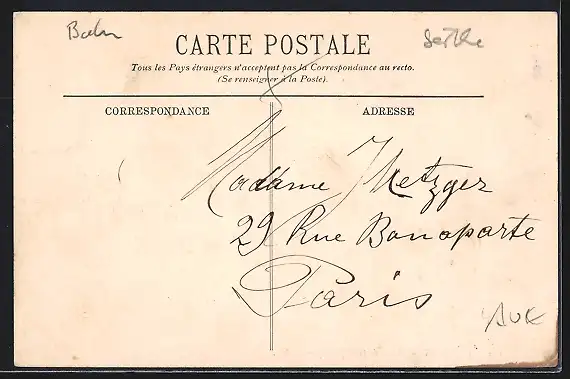 Bahn
Sarthe
CARTE POSTALE
Tous les Pays étrangers n'acceptent pas la Correspondance au recto.
(Se renseigner à la Poste).
CORRESPONDANCE
ADRESSE
Madame Metzger
29 Rue Bonaparte
Paris
AUK